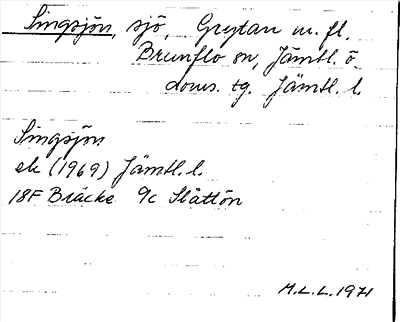 Singsjön, sjö, Grytan m. fl.
Brunflo sn, Jämtl. ö.
doms. tg. Jämtl. l.
Singsjön
ek (1969) Jämtl. l.
18F Bräcke 9c Slåttön
M.L.L. 1971